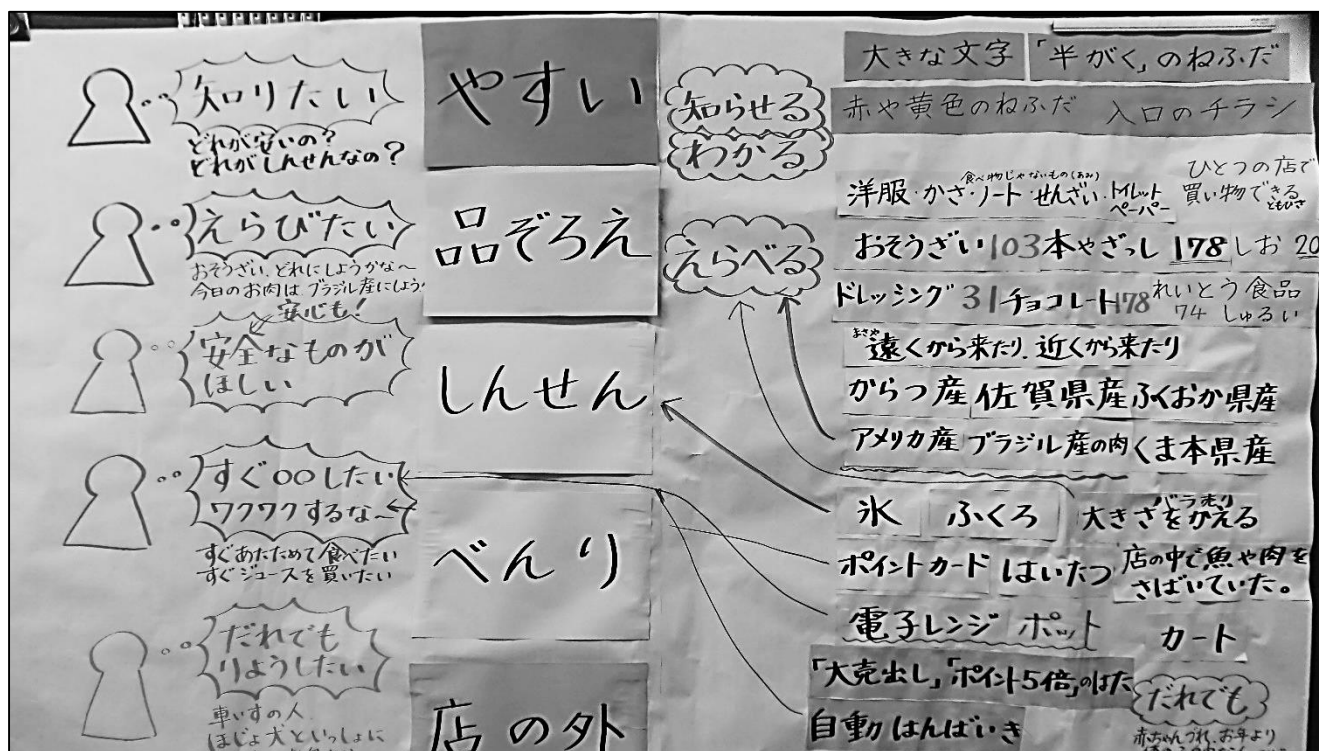 知りたい
どれが安いの?
どれがしんせんなの?
えらびたい
おそうざい、どれにしようかな〜
今日のお肉は、ブラジル産にしよう!
安心も!
安全なものが
ほしい
すぐ○○したい
ワクワクするな〜
すぐあたためて食べたい
すぐジュースを買いたい
だれでも
りようしたい
車いすの人
ほじょ犬といっしょに
やすい
品ぞろえ
しんせん
べんり
店の外
知らせる
わかる
えらべる
大きな文字 「半がく」のねふだ
赤や黄色のねふだ 入口のチラシ
食べ物じゃないもの(あみ)
洋服・かさ・ノート・せんざい・トイレットペーパー
ひとつの店で
買い物できる
おそうざい103 本やざっし 178 しお 20
ドレッシング 31 チョコレート178 れいとう食品
74 しゅるい
まさや
遠くから来たり、近くから来たり
からつ産 佐賀県産 ふくおか県産
アメリカ産 ブラジル産の肉 くま本県産
バラ売り
氷 ふくろ 大きさをかえる
ポイントカード はいたつ 店の中で魚や肉を
さばいていた。
電子レンジ ポット カート
「大売出し」「ポイント5倍」のはた
自動はんばいき
だれでも
赤ちゃんづれ、お年より